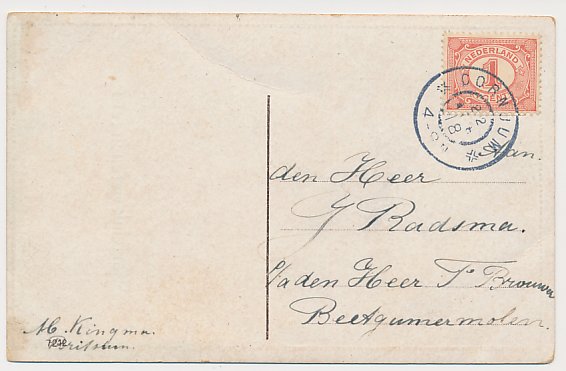 NEDERLAND
1
CENT
DORNJUM
Aan.
den Heer
J Radsma.
p/a den Heer T Brouwer
Beetgumermolen.
M. Kingma.
Britsum.